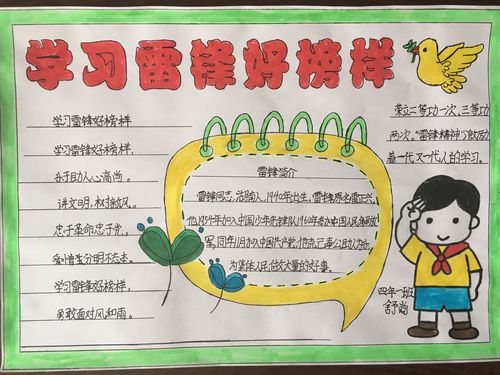 学习雷锋好榜样
学习雷锋好榜样
学习雷锋好榜样,
助人心高尚。
讲文明,树新风。
忠于革命忠于党。
爱憎分明不忘本。
学习雷锋好榜样,
勇敢面对风和雨。
雷锋简介
雷锋同志,湖南人,1940年出生,雷锋原名雷正兴。
他1954年加入中国少年先锋队,1960年参加中国人民解放
军,同年11月加入中国共产党,
为集体人民做大量的好事。
荣立二等功一次、三等功
两次。"雷锋精神"鼓励
着一代又一代人的学习。
四年一班
舒尚